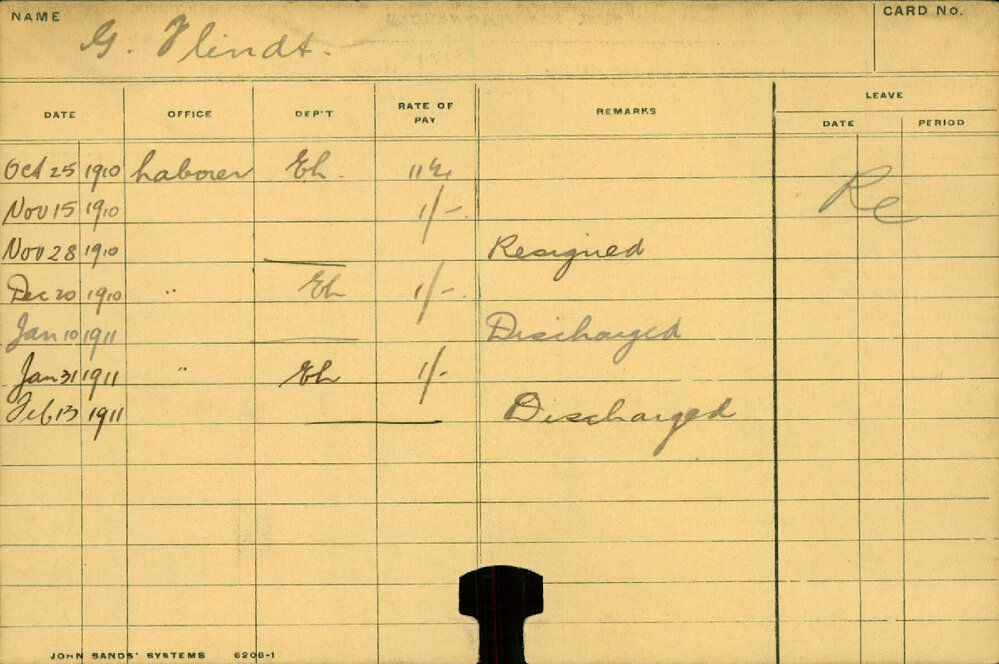 NAME G. Flindt. CARD No.
DATE OFFICE DEP'T RATE OF PAY REMARKS LEAVE
DATE PERIOD
Oct 25 1910 Laborer Eh.
Nov 15 1910 1/-.
Nov 28 1910 Resigned
Dec 20 1910 " Eh 1/-.
Jan 10 1911 Discharged
Jan 31 1911 " Eh 1/-
Feb 13 1911 Discharged
JOHN SANDS' SYSTEMS 6206-1